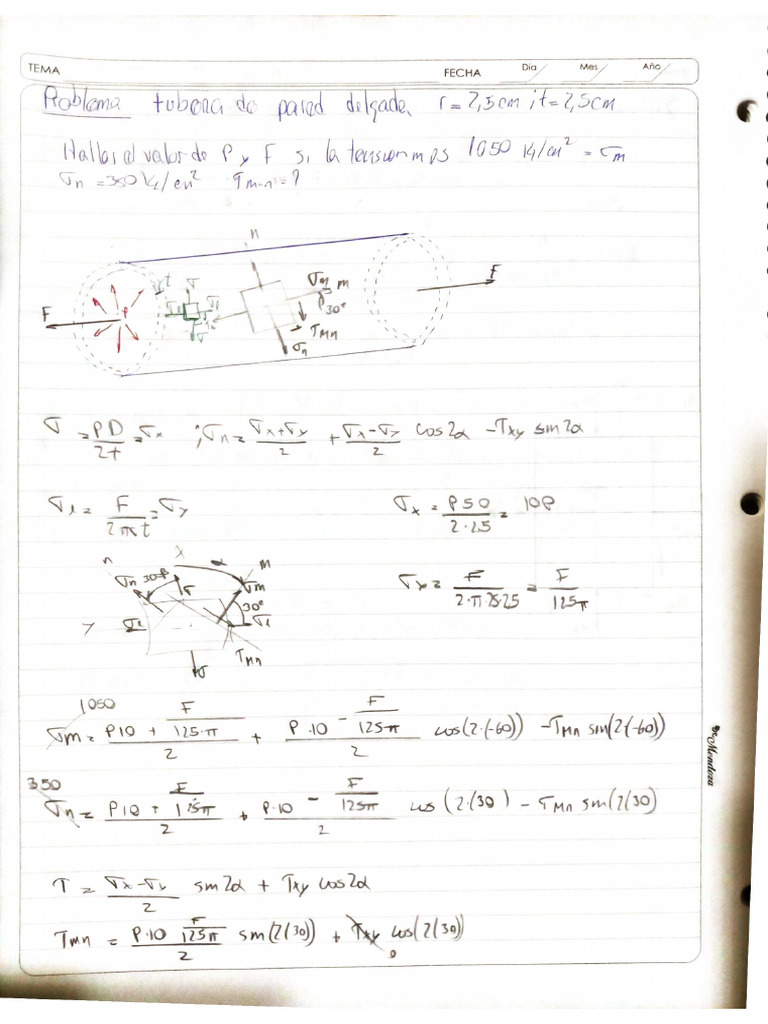 TEMA FECHA Dia Mes Año
Problema tuberia de pared delgada. r = 2,5cm ; t = 2,5cm
Hallar el valor de P y F si la tension m es 1050 K/cm² = σm
σn = 350 K/cm² τm-n = ?
n
σm m
F t σ F
P 30°
τmn
σn
σ = PD/2t = σx ; σn = (σx+σy)/2 + (σx-σy)/2 cos2α - τxy sm2α
σl = F/2πrt = σy σx = P50/2·2.5 = 10P
x α m
n σn 30° σ σm σx = F/2·π·25·2.5 = F/125π
30°
y σl σl
τmn
σ
1050
σm = (P10 + F/125·π)/2 + (P·10 - F/125·π)/2 cos(2·(-60)) - τmn sm(2(-60))
350
σn = (P10 + F/125π)/2 + (P·10 - F/125π)/2 cos(2·(30) - τmn sm(2(30)
τ = (σx-σy)/2 sm2α + τxy cos2α
τmn = (P·10 F/125π)/2 sm(2(30)) + τxy cos(2(30)
0
Mendoza